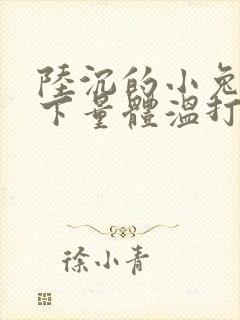 陸沉的小兔
下量體溫打
徐小青